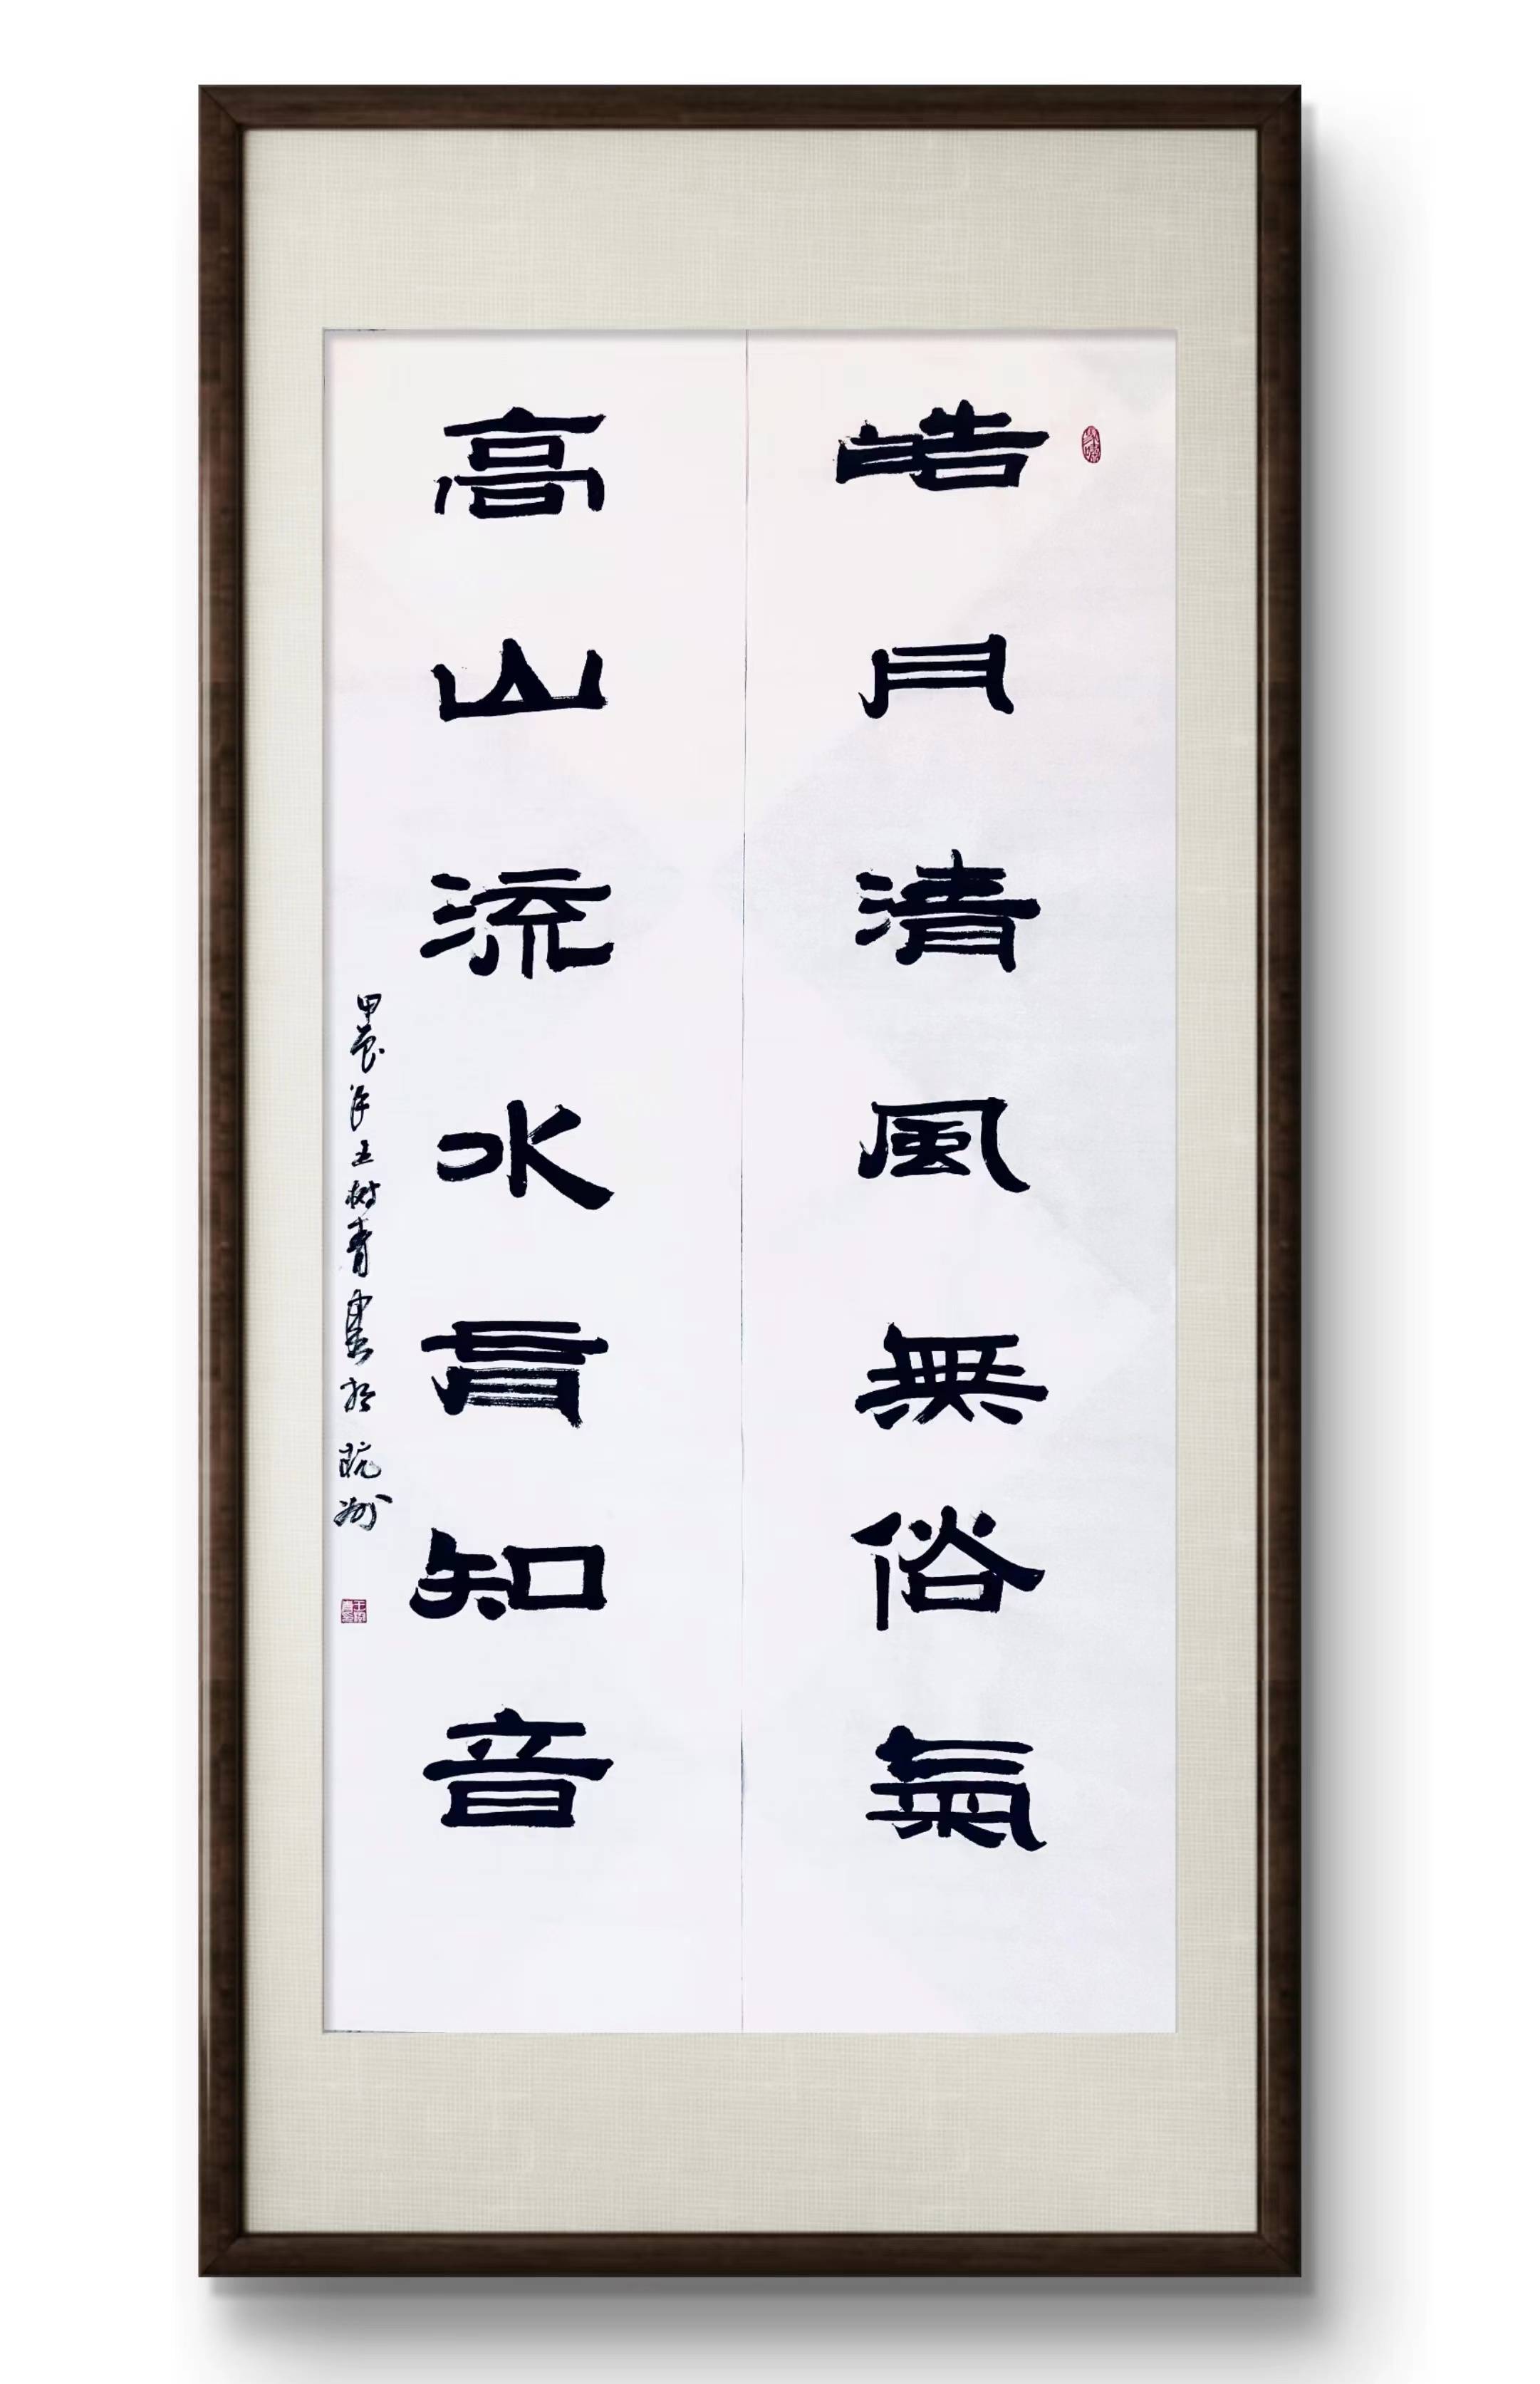 皓月清風無俗氣
高山流水有知音
甲辰年王树青書於杭州